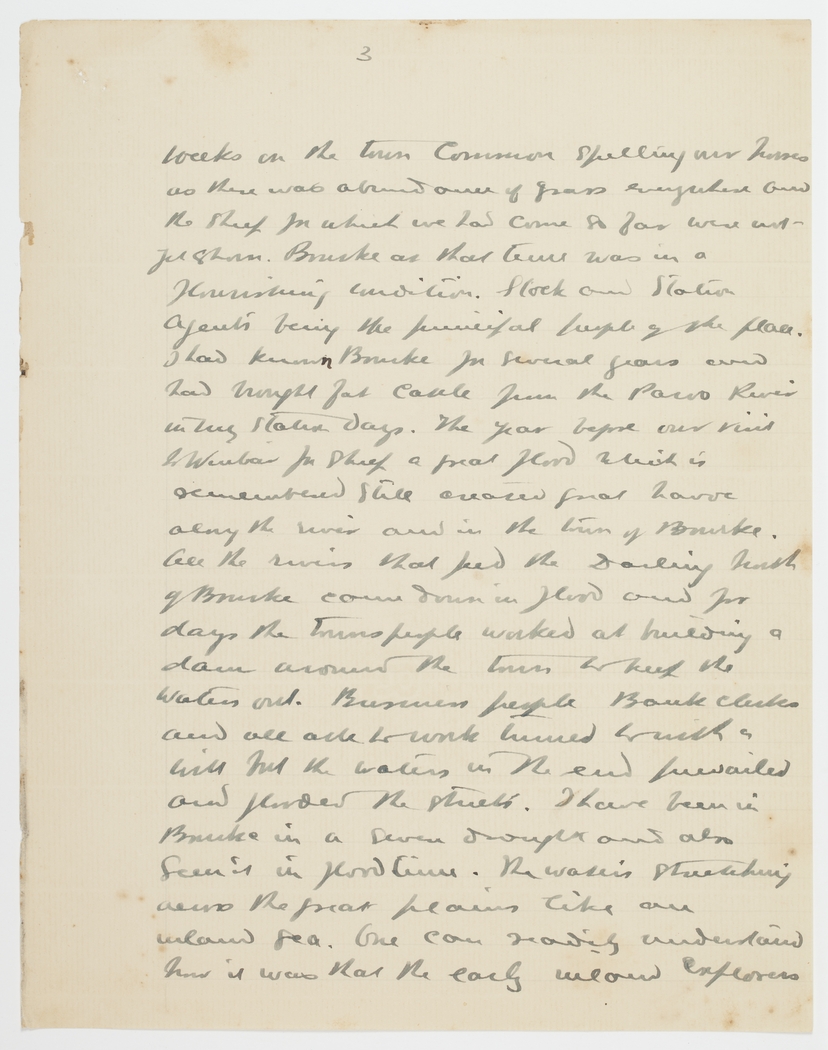 3
weeks on the town Common Spelling our horses
as there was abundance of grass everywhere and
the Sheep for which we had come so far were not
yet shorn. Bourke at that time was in a
flourishing condition. Stock and Station
Agents being the principal people of the place.
I had known Bourke for several years and
had brought fat Cattle from the Paroo River
in my Station Days. The year before our visit
to Winbar for Sheep a great flood which is
remembered still created great havoc
along the river and in the town of Bourke.
All the rivers that feed the Darling North
of Bourke came down in flood and for
days the townspeople worked at building a
dam around the town to keep the
waters out. Business people Bank clerks
and all able to work turned to with a
will but the waters in the end prevailed
and flooded the streets. I have been in
Bourke in a severe drought and also
seen it in flood time. The waters stretching
across the great plains like an
inland sea. One can readily understand
how it was that the early inland explorers